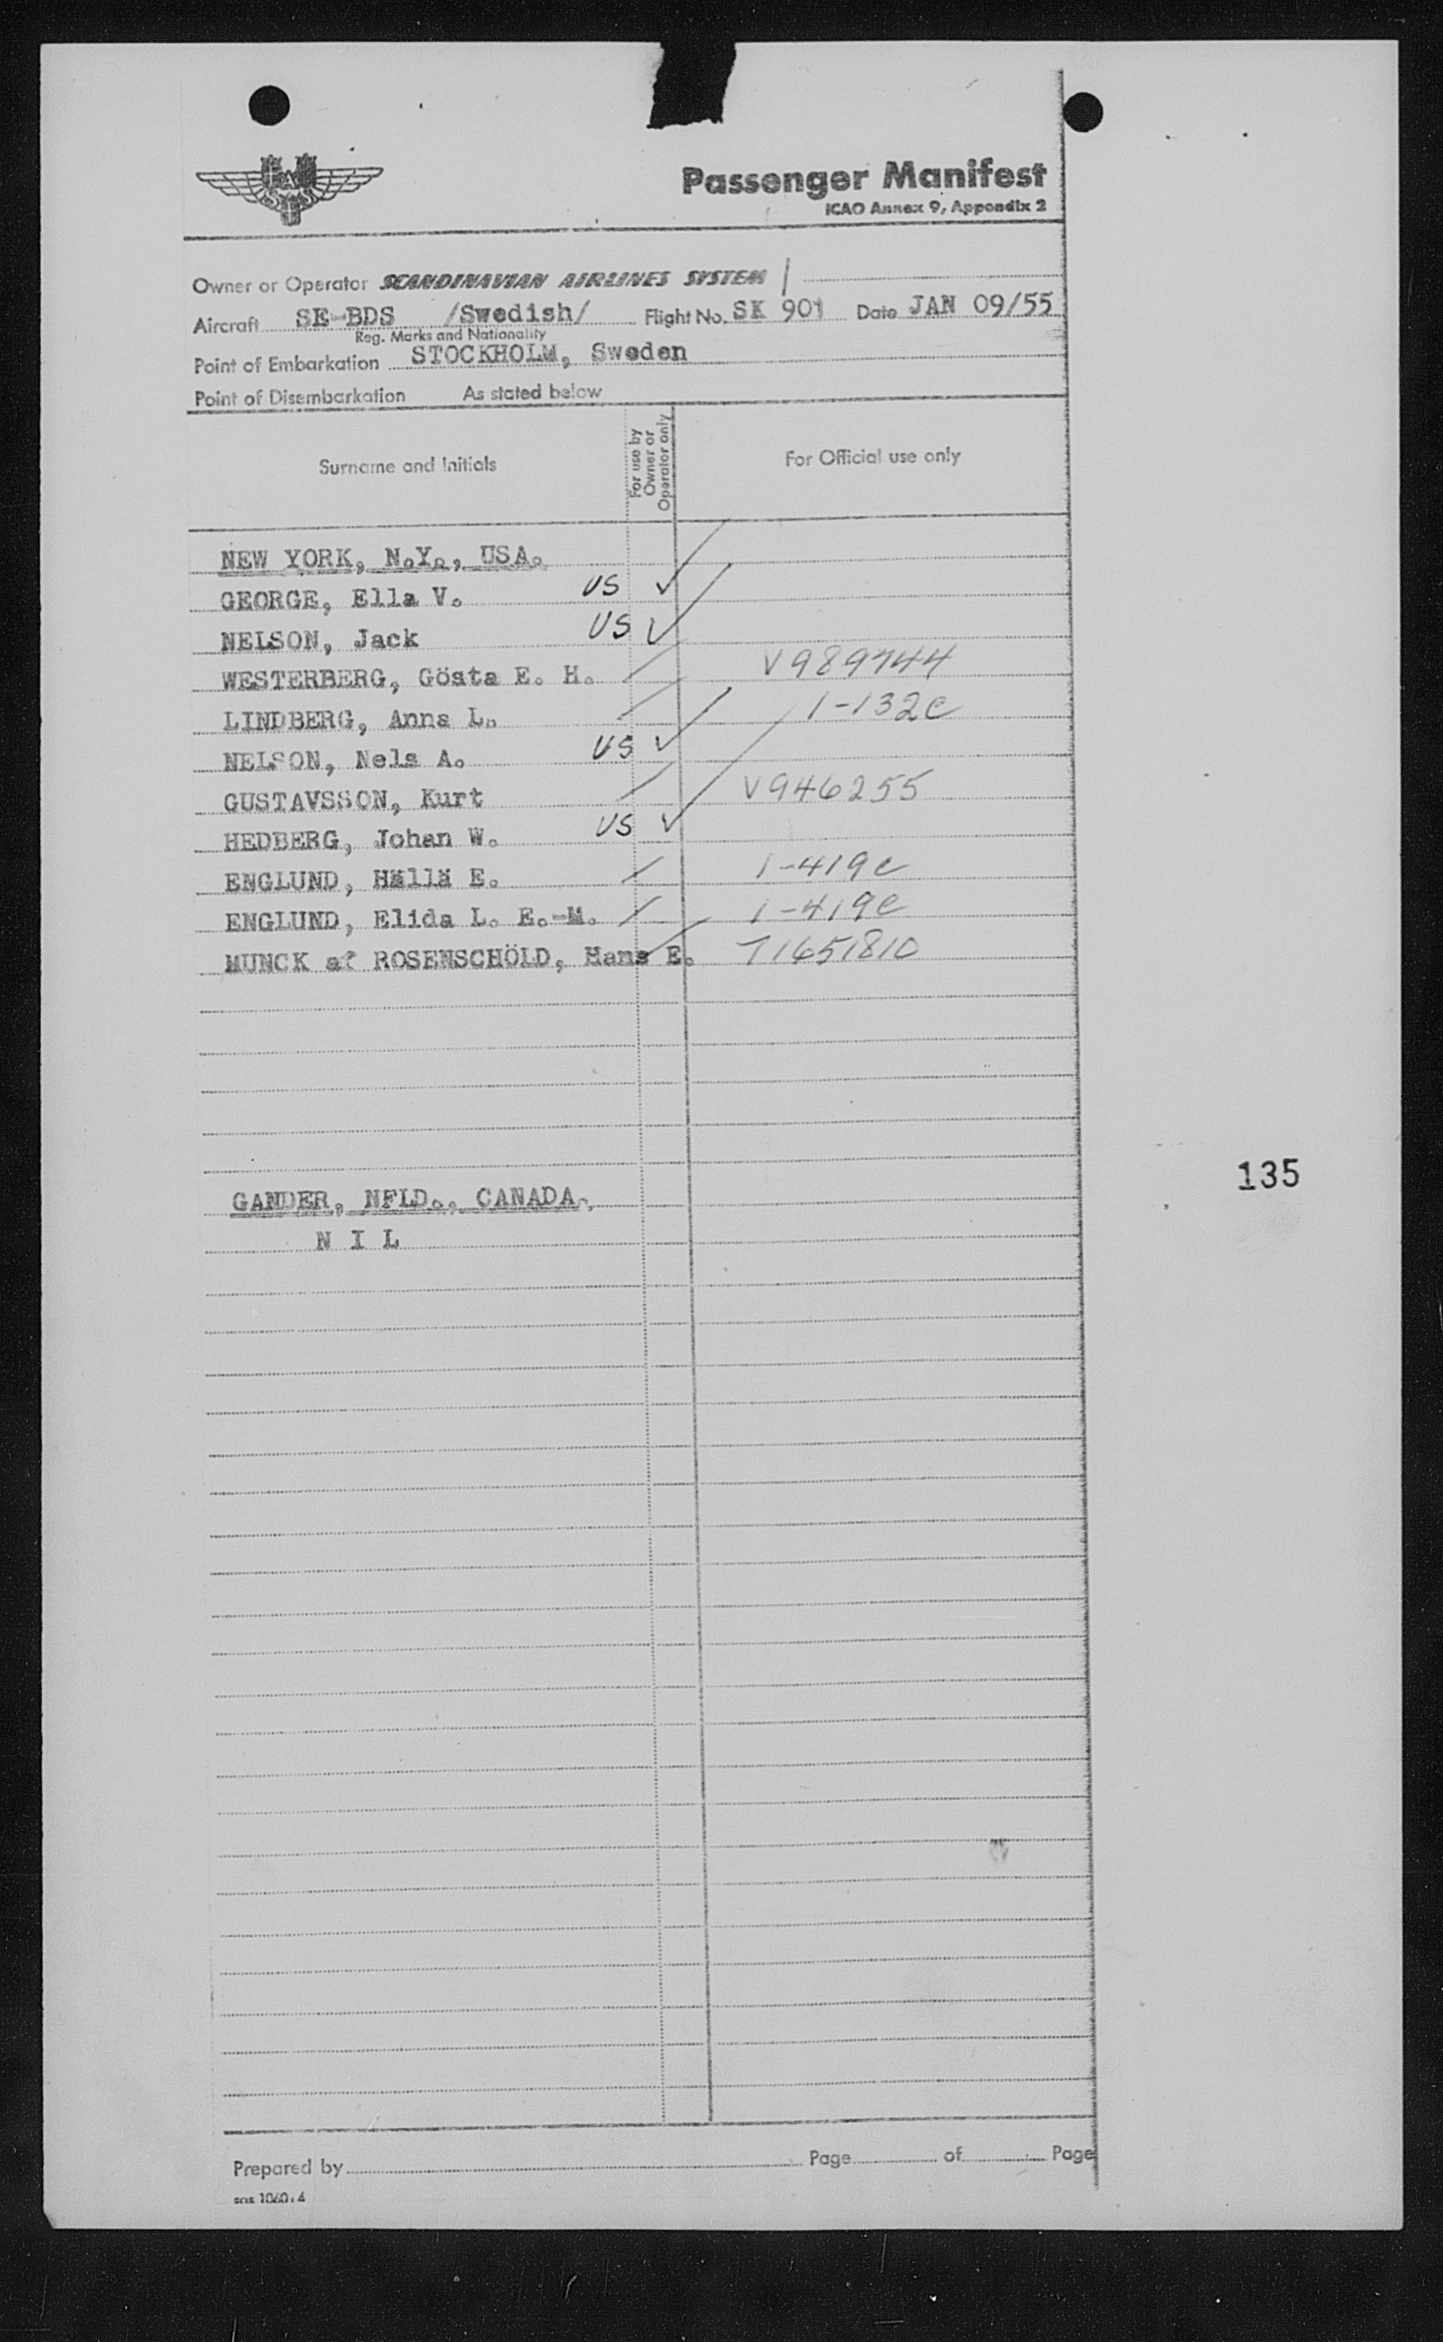 SAS
Passenger Manifest
ICAO Annex 9, Appendix 2
Owner or Operator SCANDINAVIAN AIRLINES SYSTEM
Aircraft SE-BDS /Swedish/ Flight No. SK 901 Date JAN 09/55
Reg. Marks and Nationality
Point of Embarkation STOCKHOLM, Sweden
Point of Disembarkation As stated below
Surname and Initials For use by Owner or Operator only For Official use only
NEW YORK, N.Y., USA.
GEORGE, Ella V. US ✓
NELSON, Jack US ✓
WESTERBERG, Gösta E. H. / V989744
LINDBERG, Anna L. / 1-132c
NELSON, Nels A. US ✓
GUSTAVSSON, Kurt / V946255
HEDBERG, Johan W. US ✓
ENGLUND, Hällä E. / 1-419c
ENGLUND, Elida L. E.-M. / 1-419c
MUNCK af ROSENSCHÖLD, Hans E. / T1651810
135
GANDER, NFLD., CANADA.
N I L
Prepared by Page of Page
sas 1060:4